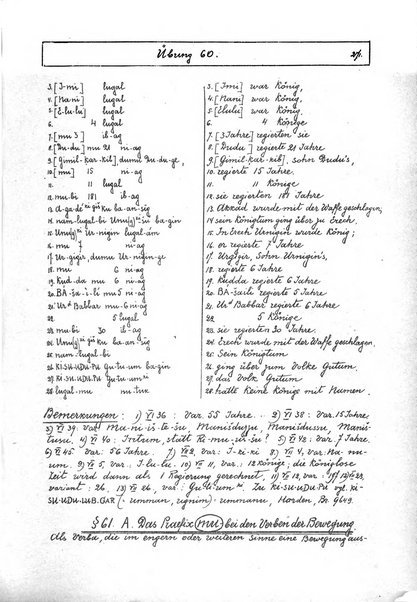 Übung 60.
3. [I-mi] lugal
4. [Na-ni] lugal
5. [E-lu-lu] lugal
6. 4 lugal
7. [mu 3] ib-ag
8. [Du-du] mu 21 ni-ag
9. [Gimil-kar-kib], dumu Du-du-ge,
10. [mu] 15 ni-ag
11. 11 lugal
12. mu-bi 181 ib-ag
13. A-ga-dè ba-an-sig
14. nam-lugal-bi ba-gin
15. Ur-nigin lugal-àm
16. mu 7 ni-ag
17. Ur-gigir, dumu Ur-nigin-ge
18. mu 6 ni-ag
19. Kud-da mu 6 ni-ag
20. BA-ša-ì-lí mu 5 ni-ag
21. Ur-Babbar mu 6 ni-ag
22. 5 lugal
23. mu-bi 30 ib-ag
24. ba-an-sig
25. nam-lugal-bi
26. KI-SU-UDU-PU Gu-tu-um ba-gin
27. KI-SU-UDU-PU Gu-tu-um
28. lugal-mu nu-tuk
3. [Imi] war König,
4. [Nani] war König,
5. [Elulu] war König,
6. 4 Könige
7. [3 Jahre] regierten sie
8. [Dudu] regierte 21 Jahre
9. [Gimil-kar-kib], Sohn Dudu's,
10. regierte 15 Jahre.
11. 11 Könige
12. sie regierten 181 Jahre
13. Akkad wurde mit der Waffe geschlagen,
14. sein Königtum ging über zu Erech.
15. In Erech Urnigin wurde König;
16. er regierte 7 Jahre
17. Urgigir, Sohn Urnigin's,
18. regierte 6 Jahre
19. Kudda regierte 6 Jahre
20. BA-šaili regierte 5 Jahre
21. Ur Babbar regierte 6 Jahre
22. 5 Könige
23. sie regierten 30 Jahre.
24. Erech wurde mit der Waffe geschlagen.
25. Sein Königtum
26. ging über zum Volke Gutum.
27. das Volk Gutum
28. hatte keine Könige mit Namen.
Bemerkungen: 1) VI 36: Var. 55 Jahre. 2) VI 38: Var. 15 Jahre,
3) VI 39: var. Ma-ni-iš-te-šu, Maništuzu, Manidussu, Maniš
tusu. 4) VI 40: Irtum, statt 5) VI 42: Var. 7 Jahre.
6) VI 45 var: 56 Jahre. 7) VII 2, var: I-ki-ki 8) VII 4, var. Na-nu-
um. 9) VII 5, var: I-lu-lu. 10) VII 11, var: 12 Könige; die königlose
Zeit wird dann als 1 Regierung gerechnet, 11) VII 12, var:
variant: 26. 13) VII 26. var: Gu-ti-um Zu KI-SU-UDU-PU
umman, ugnim) = ummanu, Horden,
§ 61. A. Das Praefix mu bei den Verben der Bewegung
Als Verba, die im engern oder weiteren Sinne eine Bewegung aus-